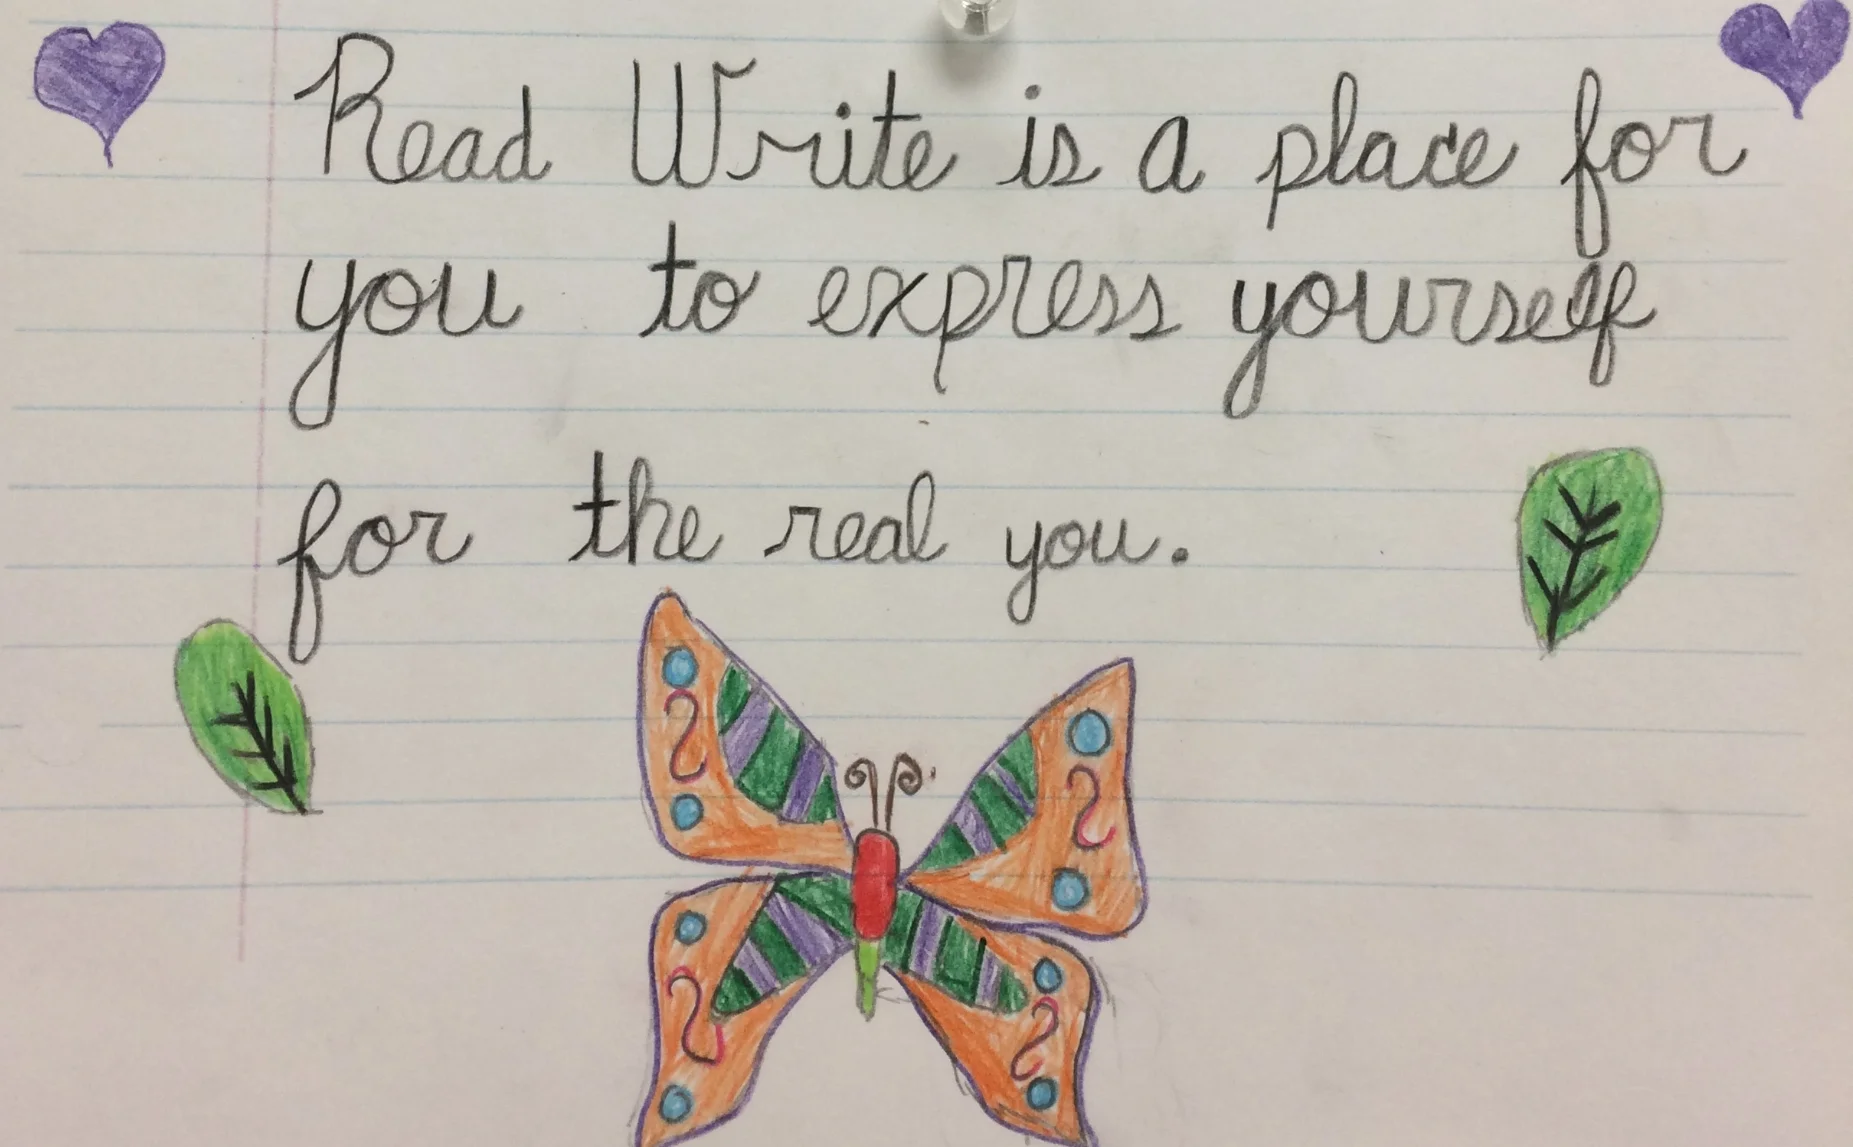 Read Write is a place for
you to express yourself
for the real you.